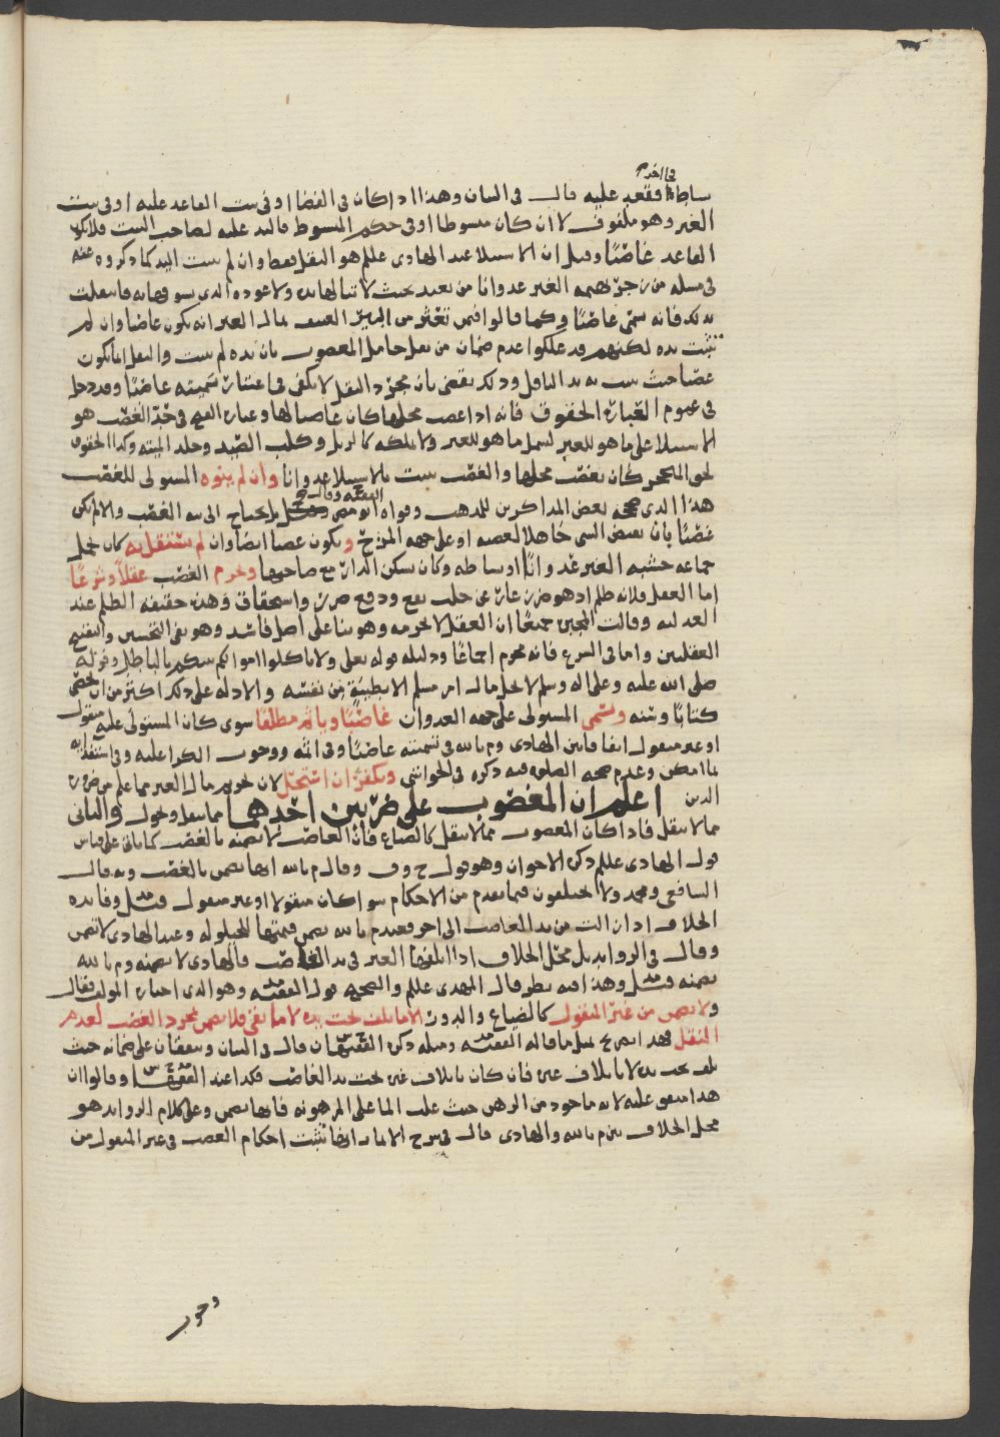 بساطا فقعد عليه قال في البيان وهذا اذا كان في الفضا او في بيت القاعد عليه او في بيت
الغير وهو ملفوف لا ان كان مبسوطا او في حكم المبسوط فاليد عليه لصاحب البيت فلا يكون
القاعد غاصبًا وقيل ان الاستيلا عند الهادي عللم هو النقل فقط وان لم يثبت اليد كما ذكروه عنه
في مسله من زجر بهيمه الغير عدوانا من بعيد بحيث لا تنالها يده ولا عوده الذي يسوقها به فانفلتت
بذلك فانه يسمى غاصبًا وكما قالوا فيمن تعثر من المال الغير انه يكون غاصبا وان لم
تثبت يده لكنهم قد عللوا عدم ضمان من نقل حامل المغصوب بان يده لم تثبت والنقل انما يكون
غصبا حيث يثبت به يد الناقل وذلك يقضي بان مجرد النقل لا يكفي في اعتبار تسميته غاصبًا وقد دخل
في عموم العبارة الحقوق فانه اذا غصب محلها كان غاصبا لها وعباره في حد الغصب هو
الاستيلا على ما هو للغير ليشمل ما هو للغير ولا يملكه كالزبل وكلب الصيد وجلد الميته وكذا الحقوق
نحو المتحجر كان يغصب محلها والغصب يثبت بالاستيلا عدوانا وان لم ينوه المستولي للغصب
هذا الذي صححه بعض المذاكرين للمذهب وقواه ابو مضر وقيل بل يحتاج الى نيه الغصب والا لم يكن
غصبًا بان يقبض الشي جاهلا لغصبه او على جهه المزح ويكون غصبا ايضا وان لم يستقل به كان يحمل
جماعه خشبه الغير عدوانًا او بساطه وكان يسكن الدار مع صاحبها وحرم الغصب عقلاً وشرعًا
اما العقل فلانه ظلم اذ هو ضرر عار عن جلب نفع ودفع ضرر واستحقاق وهذه حقيقه الظلم عند
العدليه وقالت المجبره جميعًا ان العقل لا يحرمه وهو بنا على اصل فاسد وهو نفي التحسين والتقبيح
العقليين واما في الشرع فانه محرم اجماعًا ودليله قوله تعلى ولا تاكلوا اموالكم بينكم بالباطل وقوله
صلى الله عليه وعلى اله وسلم لا يحل مال امر مسلم الا بطيبة من نفسه والادله على ذلك اكثر من ان تحصى
كتابًا وسنه ويسمى المستولي على جهه العدوان غاصبًا وياثم مطلقا سوى كان المستولى عليه منقول
او غير منقول اتفاقا بين الهادي وم بالله في تسميته غاصبًا وفي اثمه ووجوب الكرا عليه وفي استفدايه
بما امكن وعدم صحه الصلوه فيه ذكره في الحواشي ويكفر ان استحل لان تحريم مال الغير مما علم من ضروره
الدين اعلم ان المغصوب على ضربين احدهما مما ينقل ويحول والثاني
مما لا ينقل فاذا كان المغصوب مما لا ينقل كالضياع فان الغاصب لا يضمنه بالغصب كما ياتي على قياس
قول الهادي عللم ذكره الاخوان وهو قول ح وف وقال م بالله انها تضمن بالغصب وبه قال
الشافعي ومحمد ولا يختلفون فيما تقدم من الاحكام سوا كان منقولا او غير منقول قيل وفايده
الخلاف اذا زالت من يد الغاصب الى اخر فعند م بالله يضمن قيمتها للحيلوله وعند الهادي لا تضمن
وقال في الزوايد بل محل الخلاف اذا اتلفها الغير في يد الغاصب فالهادي لا يضمنه وم بالله
يضمنه قيل وهذا فيه نظر قال المهدي عللم والصحيح قول الفقيه وهو الذي اختاره المولف فقال
ولا يضمن من غير المنقول كالضياع والدور الا ما تلف تحت يده لا ما بقي فلا يضمن بمجرد الغصب لعدم
النقل فهذا تصريح بمثل ما قاله الفقيه ومثله ذكره الفقيهان قال في البيان ويتفقان على ضمانه حيث
تلف تحت يده لا باتلاف غيره فان كان باتلاف غيره تحت يد الغاصب فكذا عند الفقيه وقالوا ان
هذا متفق عليه لانه ماخوذ من الرهن حيث غلب الما على المرهونه فانها تضمن وعلى كلام الزوايد هو
محل الخلاف بين م بالله والهادي قال في شرح الاثمار ايضا تثبت احكام الغصب في غير المنقول من
وجوب